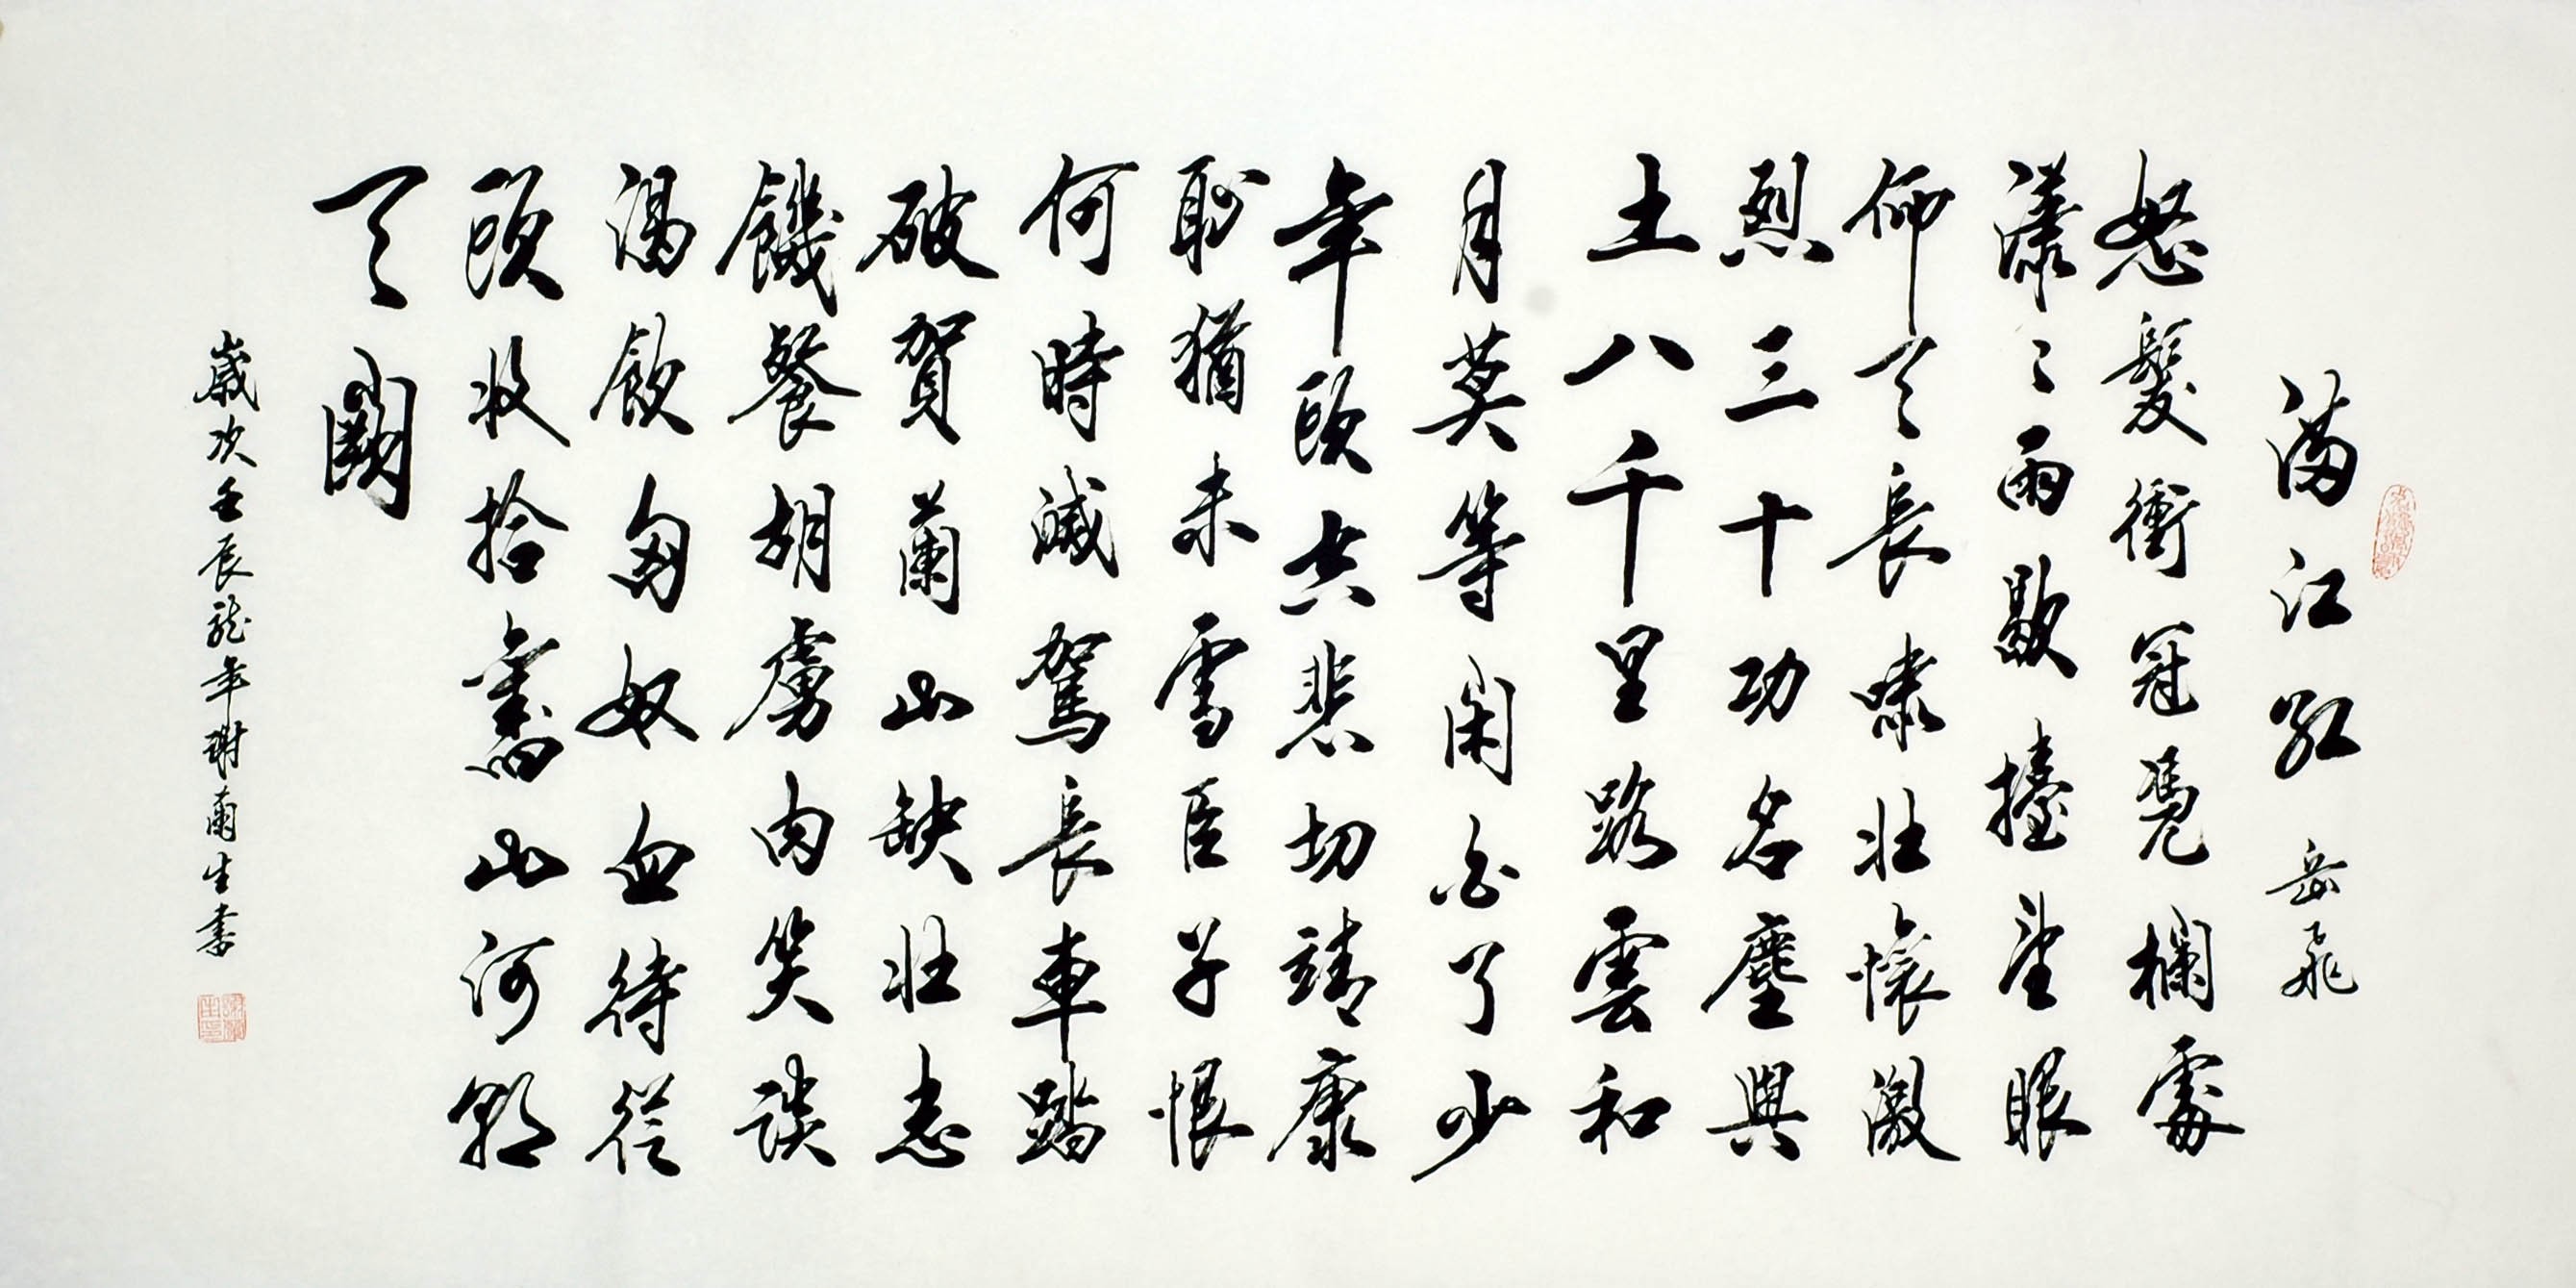 满江红 岳飛
怒髮衝冠憑欄處
潇〻雨歇擡望眼
仰天長嘯壯懷激
烈三十功名塵與
土八千里路雲和
月莫等闲白了少
年頭空悲切靖康
恥猶未雪臣子恨
何時滅駕長車踏
破賀蘭山缺壯志
饑餐胡虜肉笑談
渴飲匈奴血待從
頭收拾舊山河朝
天闕
歲次壬辰龍年謝蘭生書